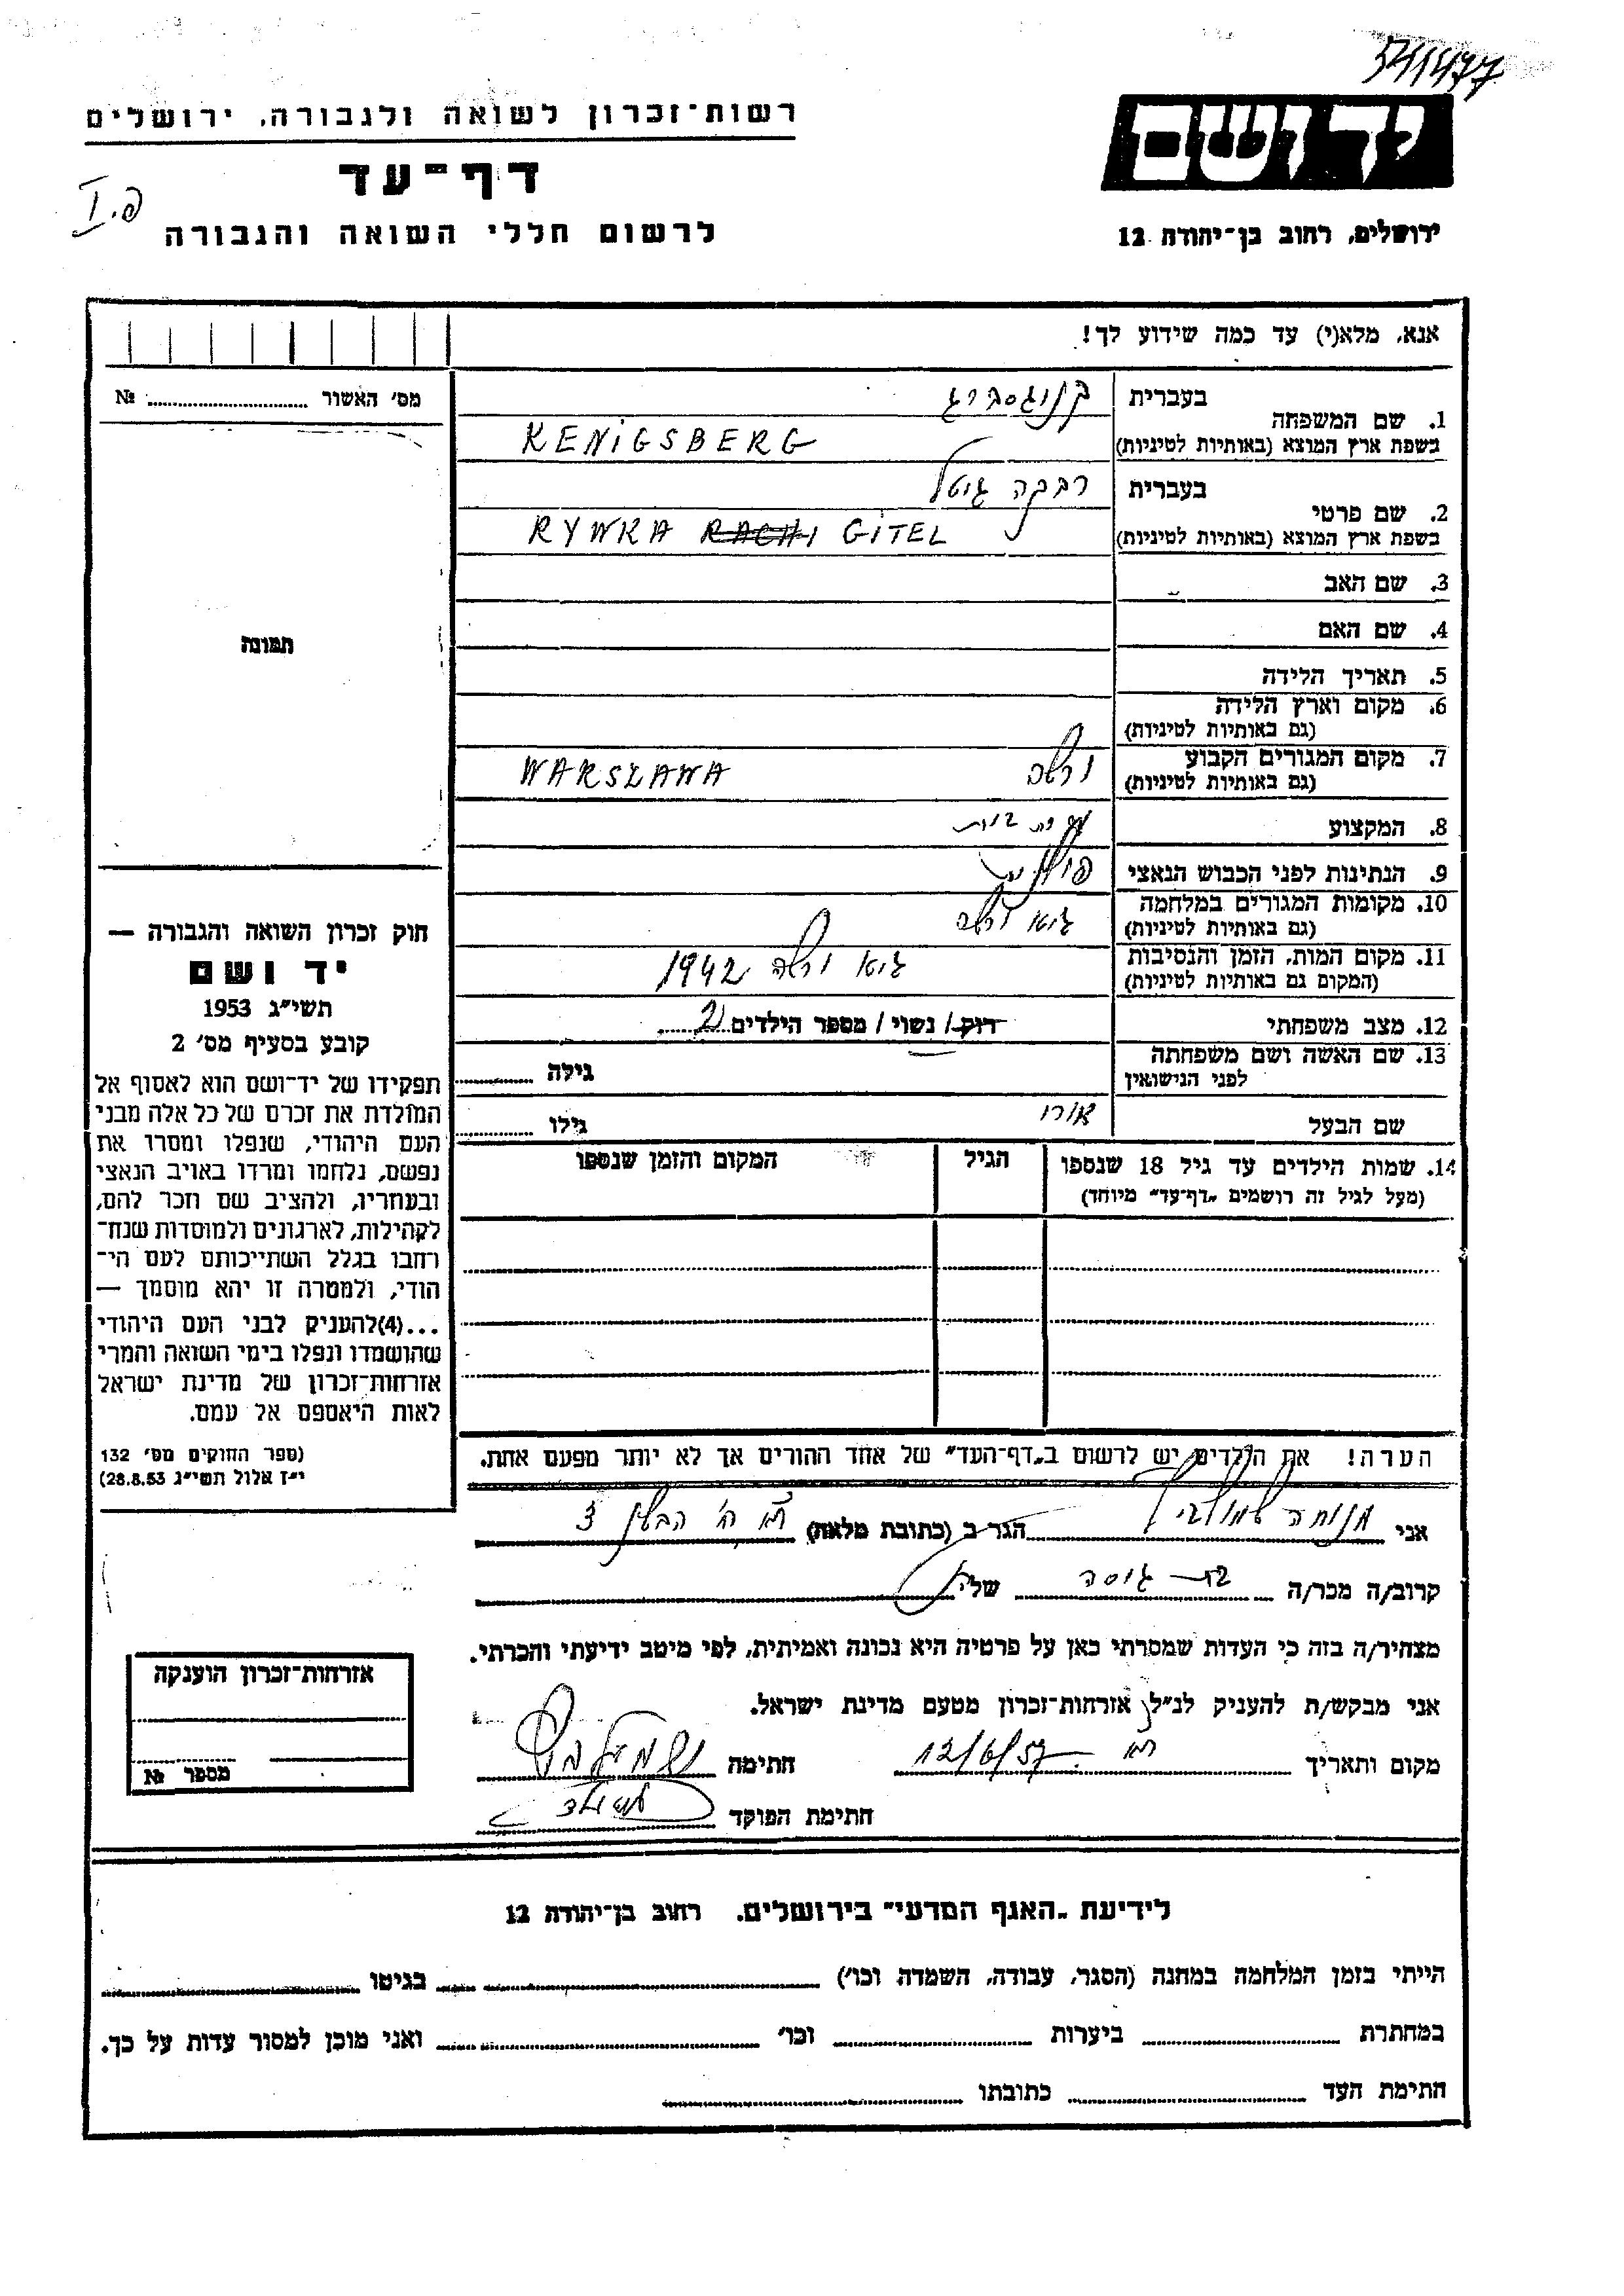 541477
רשות־זכרון לשואה ולגבורה, ירושלים
יד ושם
דף־עד
פ.I
לרשום חללי השואה והגבורה
ירושלים, רחוב בן־יהודה 12
אנא, מלא(י) עד כמה שידוע לך!
מס׳ האשור № 
1. שם המשפחה
בעברית קניגסברג
בשפת ארץ המוצא (באותיות לטיניות) KENIGSBERG
2. שם פרטי
בעברית רבקה גיטל
בשפת ארץ המוצא (באותיות לטיניות) RYWKA GITEL
3. שם האב
4. שם האם
תמונה
5. תאריך הלידה
6. מקום וארץ הלידה
(גם באותיות לטיניות)
7. מקום המגורים הקבוע ורשה WARSZAWA
(גם באותיות לטיניות)
8. המקצוע עקרת בית
9. הנתינות לפני הכבוש הנאצי פולנית
10. מקומות המגורים במלחמה גיטו ורשה
(גם באותיות לטיניות)
11. מקום המות, הזמן והנסיבות גיטו ורשה 1942
(המקום גם באותיות לטיניות)
12. מצב משפחתי רווק/ נשוי/ מספר הילדים 2
13. שם האשה ושם משפחתה
לפני הנישואין גילה
שם הבעל גילו
14. שמות הילדים עד גיל 18 שנספו הגיל המקום והזמן שנספו
(מעל לגיל זה רושמים „דף־עד״ מיוחד)
חוק זכרון השואה והגבורה —
יד ושם
תשי״ג 1953
קובע בסעיף מס׳ 2
תפקידו של יד־ושם הוא לאסוף אל
המולדת את זכרם של כל אלה מבני
העם היהודי, שנפלו ומסרו את
נפשם, נלחמו ומרדו באויב הנאצי
ובעוזריו, ולהציב שם וזכר להם,
לקהילות, לארגונים ולמוסדות שנח־
רחבו בגלל השתייכותם לעם הי־
הודי, ולמטרה זו יהא מוסמך —
...(4)להעניק לבני העם היהודי
שהושמדו ונפלו בימי השואה והמרי
אזרחות־זכרון של מדינת ישראל
לאות היאספם אל עמם.
(ספר החוקים מס׳ 132
י״ז אלול תשי״ג 28.8.53)
הערה! את הילדים יש לרשום ב„דף־העד״ של אחד ההורים אך לא יותר מפעם אחת.
אני מנוחה הגר ב (כתובת מלאה)
קרוב/ה מכר/ה בת גיסה של
מצהיר/ה בזה כי העדות שמסרתי כאן על פרטיה היא נכונה ואמיתית, לפי מיטב ידיעתי והכרתי.
אני מבקש/ת להעניק לנ״ל אזרחות־זכרון מטעם מדינת ישראל.
מקום ותאריך 12/6/57 חתימה
חתימת הפוקד
אזרחות־זכרון הוענקה
מספר №
לידיעת „האגף המדעי״ בירושלים, רחוב בן־יהודה 12
הייתי בזמן המלחמה במחנה (הסגר, עבודה, השמדה וכו׳) בגיטו
במחתרת ביערות וכו׳ ואני מוכן למסור עדות על כך.
חתימת העד כתובתו